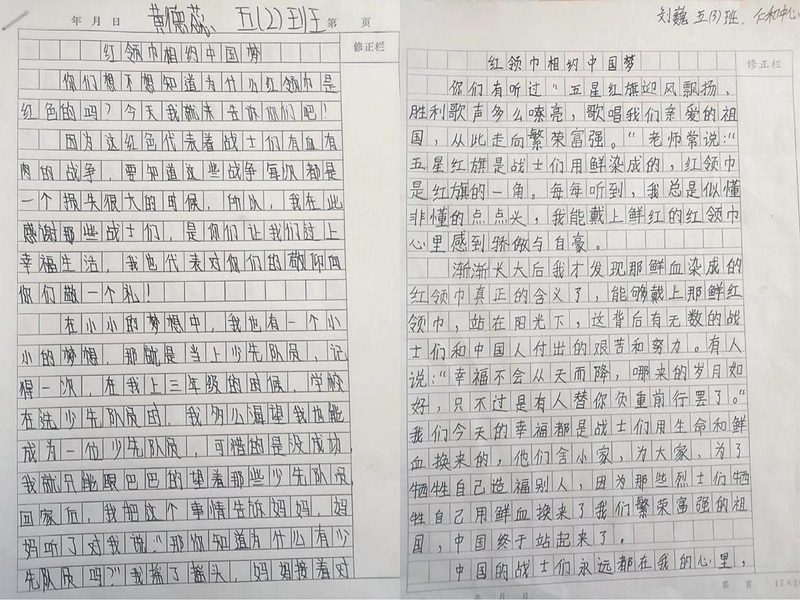 年 月 日 黄德蕊 五(2)班 第 页
修正栏
红领巾相约中国梦
你们想不想知道为什么红领巾是
红色的吗?今天我就来告诉你们吧!
因为这红色代表着战士们有血有
肉的战争,要知道这些战争每次都是
一个损失很大的时候,所以,我在此
感谢那些战士们,是你们让我们过上
幸福生活,我也代表对你们的敬仰向
你们敬一个礼!
在小小的梦想中,我也有一个小
小的梦想,那就是当上少先队员,记
得一次,在我上三年级的时候,学校
在选少先队员时,我多么渴望我也能
成为一位少先队员,可惜的是没成功
我就只能眼巴巴的望着那些少先队员
回家后,我把这个事情告诉妈妈,妈
妈听了对我说:"那你知道为什么有少
先队员吗?"我摇了摇头,妈妈接着对
刘巍 五(3)班. 仁和中心
修正栏
红领巾相约中国梦
你们有听过"五星红旗迎风飘扬,
胜利歌声多么嘹亮,歌唱我们亲爱的祖
国,从此走向繁荣富强。"老师常说:"
五星红旗是战士们用鲜染成的,红领巾
是红旗的一角。每每听到,我总是似懂
非懂的点点头,我能戴上鲜红的红领巾
心里感到骄傲与自豪。
渐渐长大后我才发现那鲜血染成的
红领巾真正的含义了,能够戴上那鲜红
领巾,站在阳光下,这背后有无数的战
士们和中国人付出的艰苦和努力。有人
说:"幸福不会从天而降,哪来的岁月如
好,只不过是有人替你负重前行罢了。"
我们今天的幸福都是战士们用生命和鲜
血换来的,他们舍小家,为大家,为了
牺牲自己造福别人,因为那些烈士们牺
牲自己用鲜血换来了我们繁荣富强的祖
国,中国终于站起来了。
中国的战士们永远都在我的心里,
年 月 日
第 页